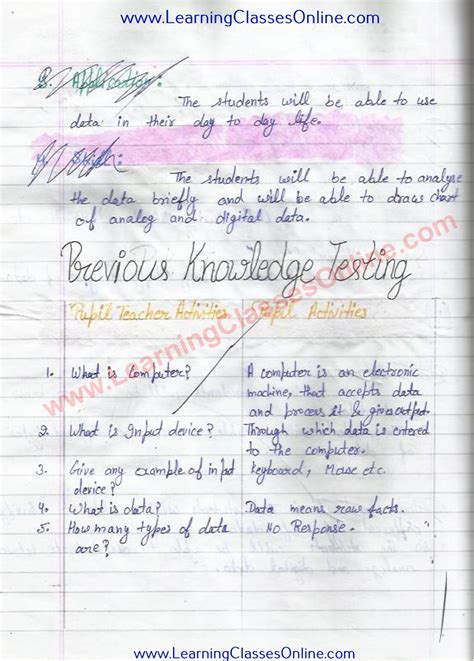 www.LearningClassesOnline.com
3. Application:
The students will be able to use
data in their day to day life.
4. Skill:
The students will be able to analyse
the data briefly and will be able to draw chart
of analog and digital data.
Previous Knowledge Testing
Pupil Teacher Activities
Pupil Activities
1. What is Computer?
A computer is an electronic
machine, that accepts data
and process it & gives output.
2. What is Input device?
Through which data is entered
to the computer.
3. Give any example of input
device?
keyboard, Mose etc.
4. What is data?
Data means raw facts.
5. How many types of data
are?
NO Response.
www.LearningClassesOnline.com
www.LearningClassesOnline.com